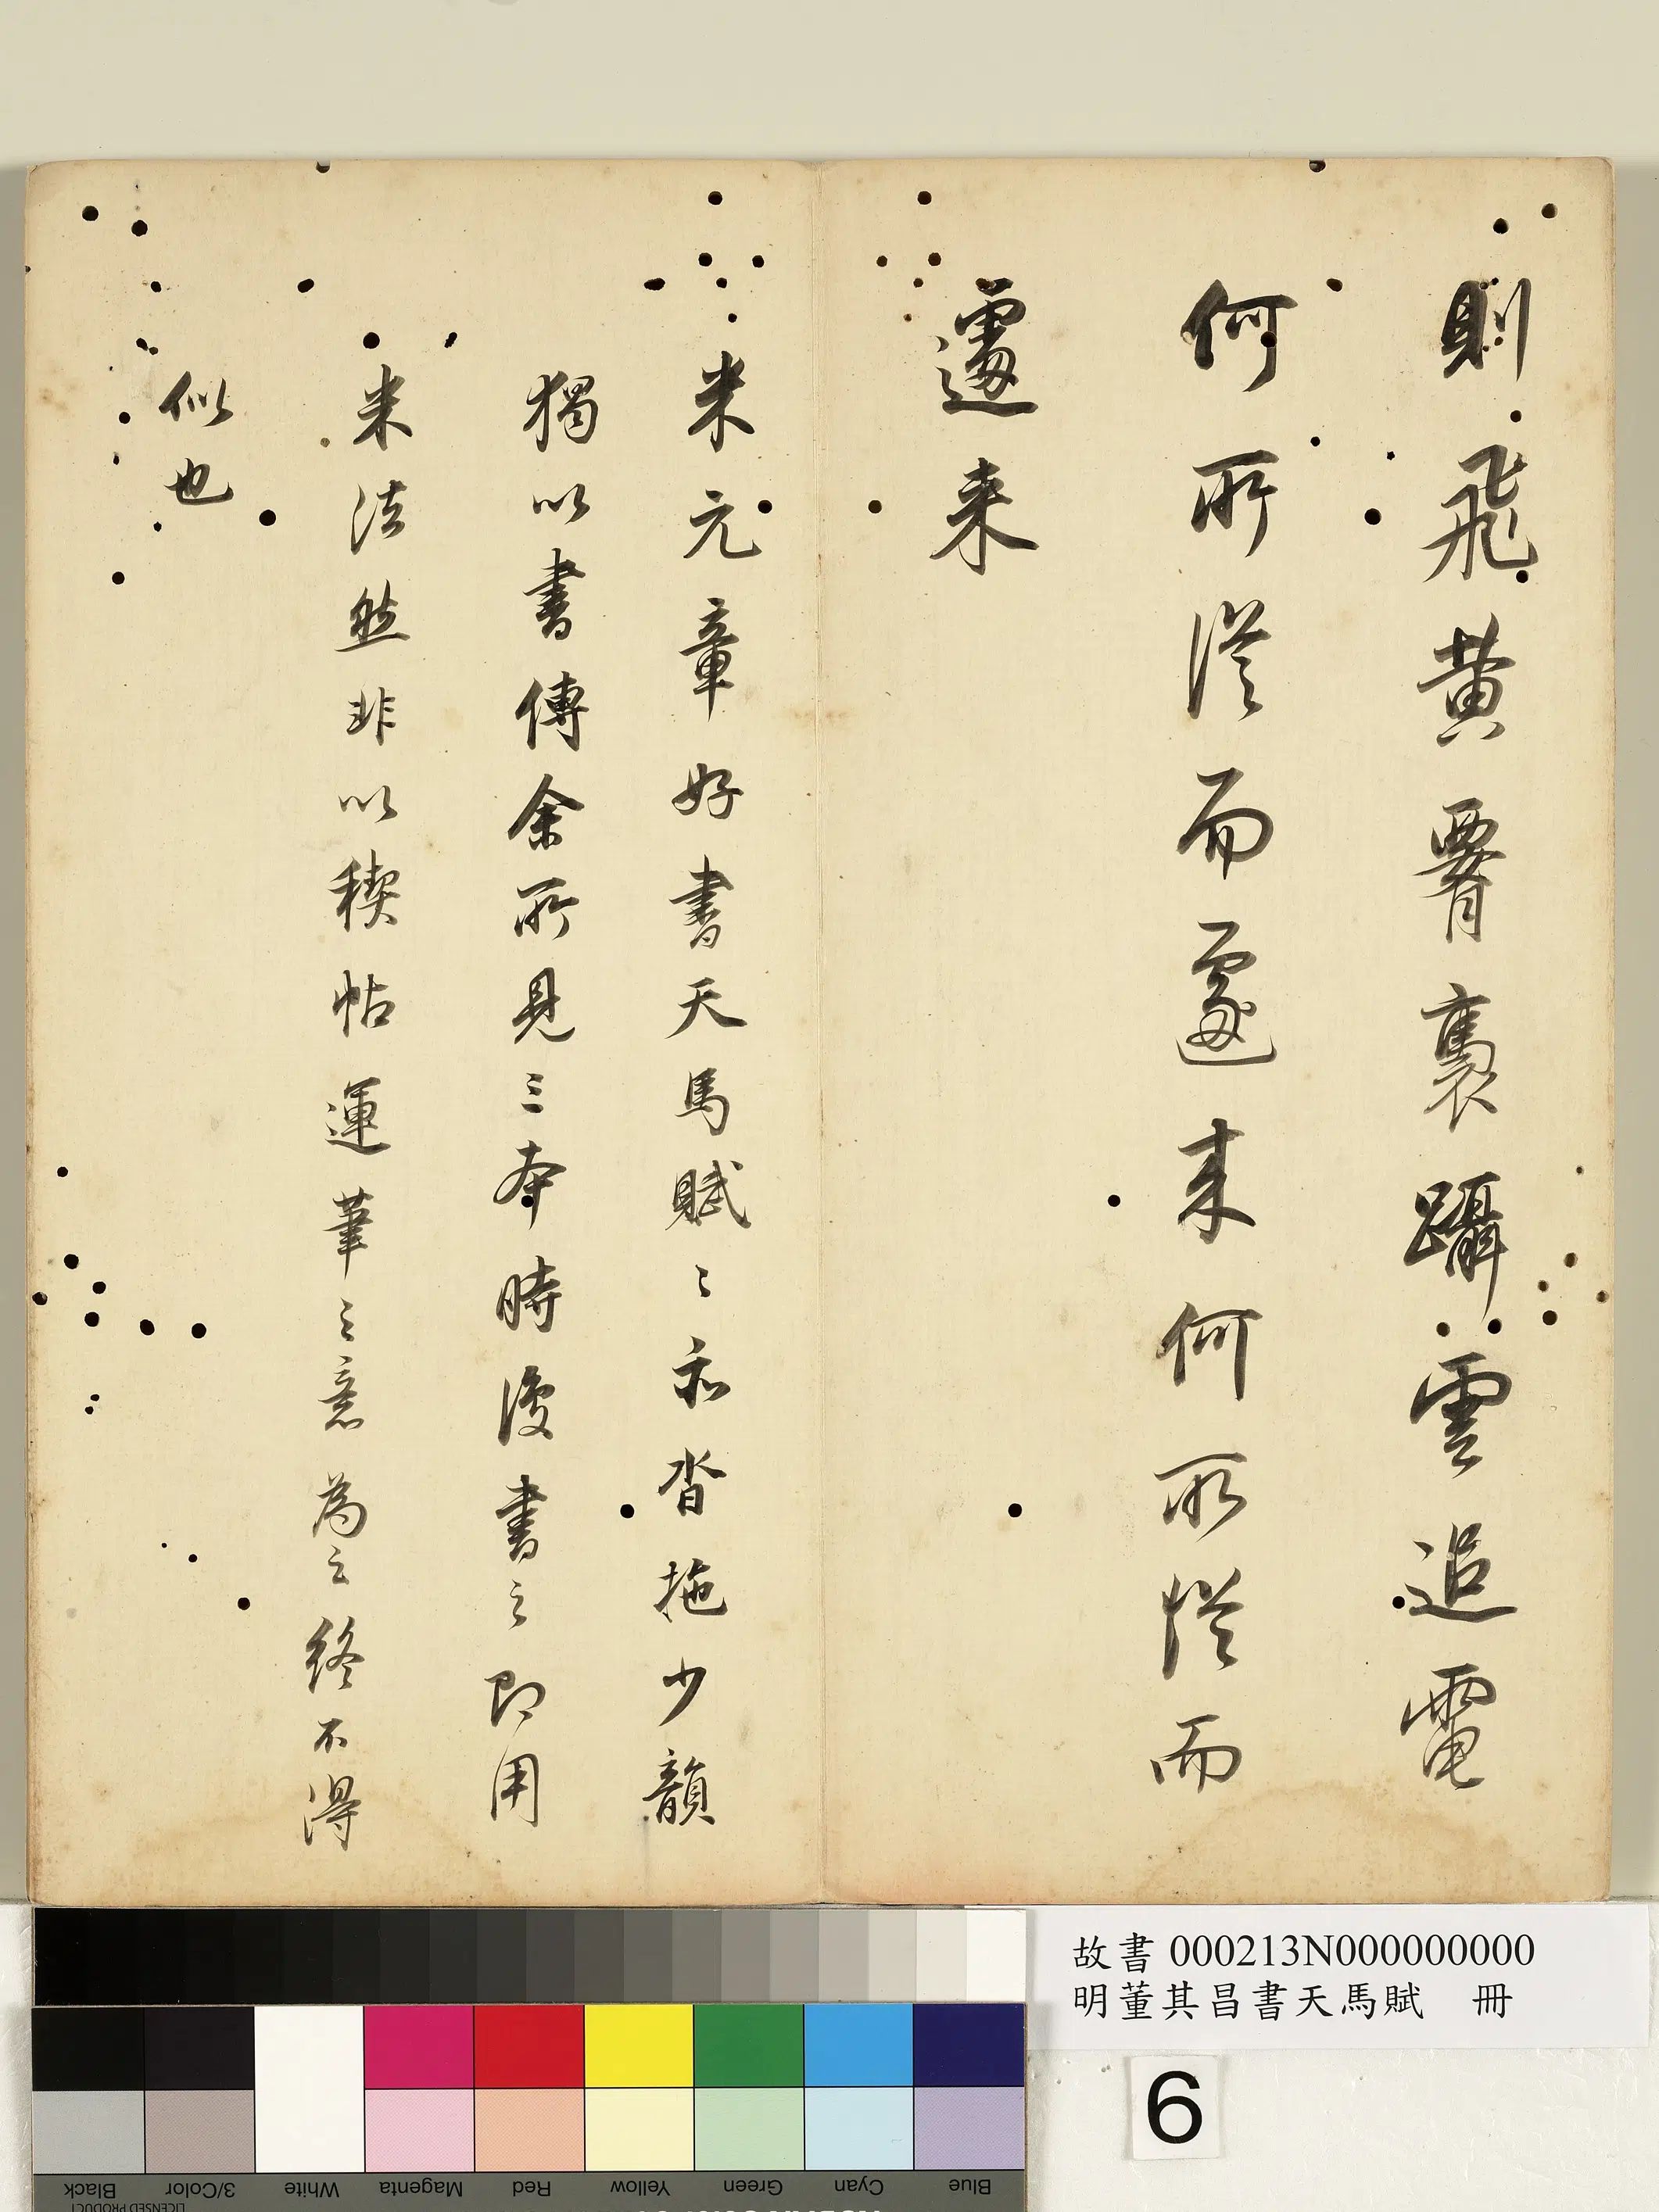 則飛黃腰褭躡雲追電
何所從而遽来何所從而
遽来
米元章好書天馬賦〻亦沓拖少韻
獨以書傳余所見三本時復書之即用
米法然非以稧帖運筆之意為之終不得
似也
故書 000213N000000000
明董其昌書天馬賦 冊
6
Black 3/Color White Magenta Red Yellow Green Cyan Blue
LICENSED PRODUCT